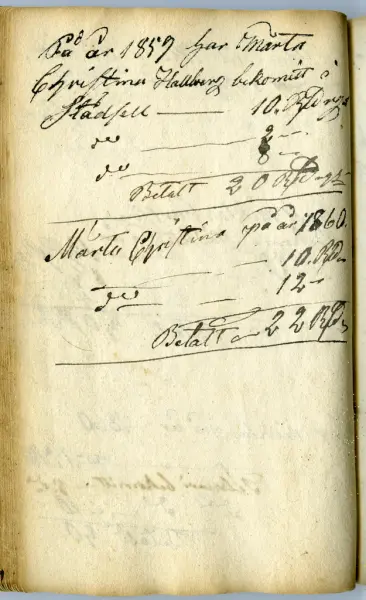 På år 1859 har Märta
Christina Hallberg bekomitt i
Städsell — 10. RD rgs
do — 2 —
do — 8 —
Betalt 20 RD rgs
Märta Christina på år 1860.
— 10. RD
do — 12 —
Betalt 22 RD